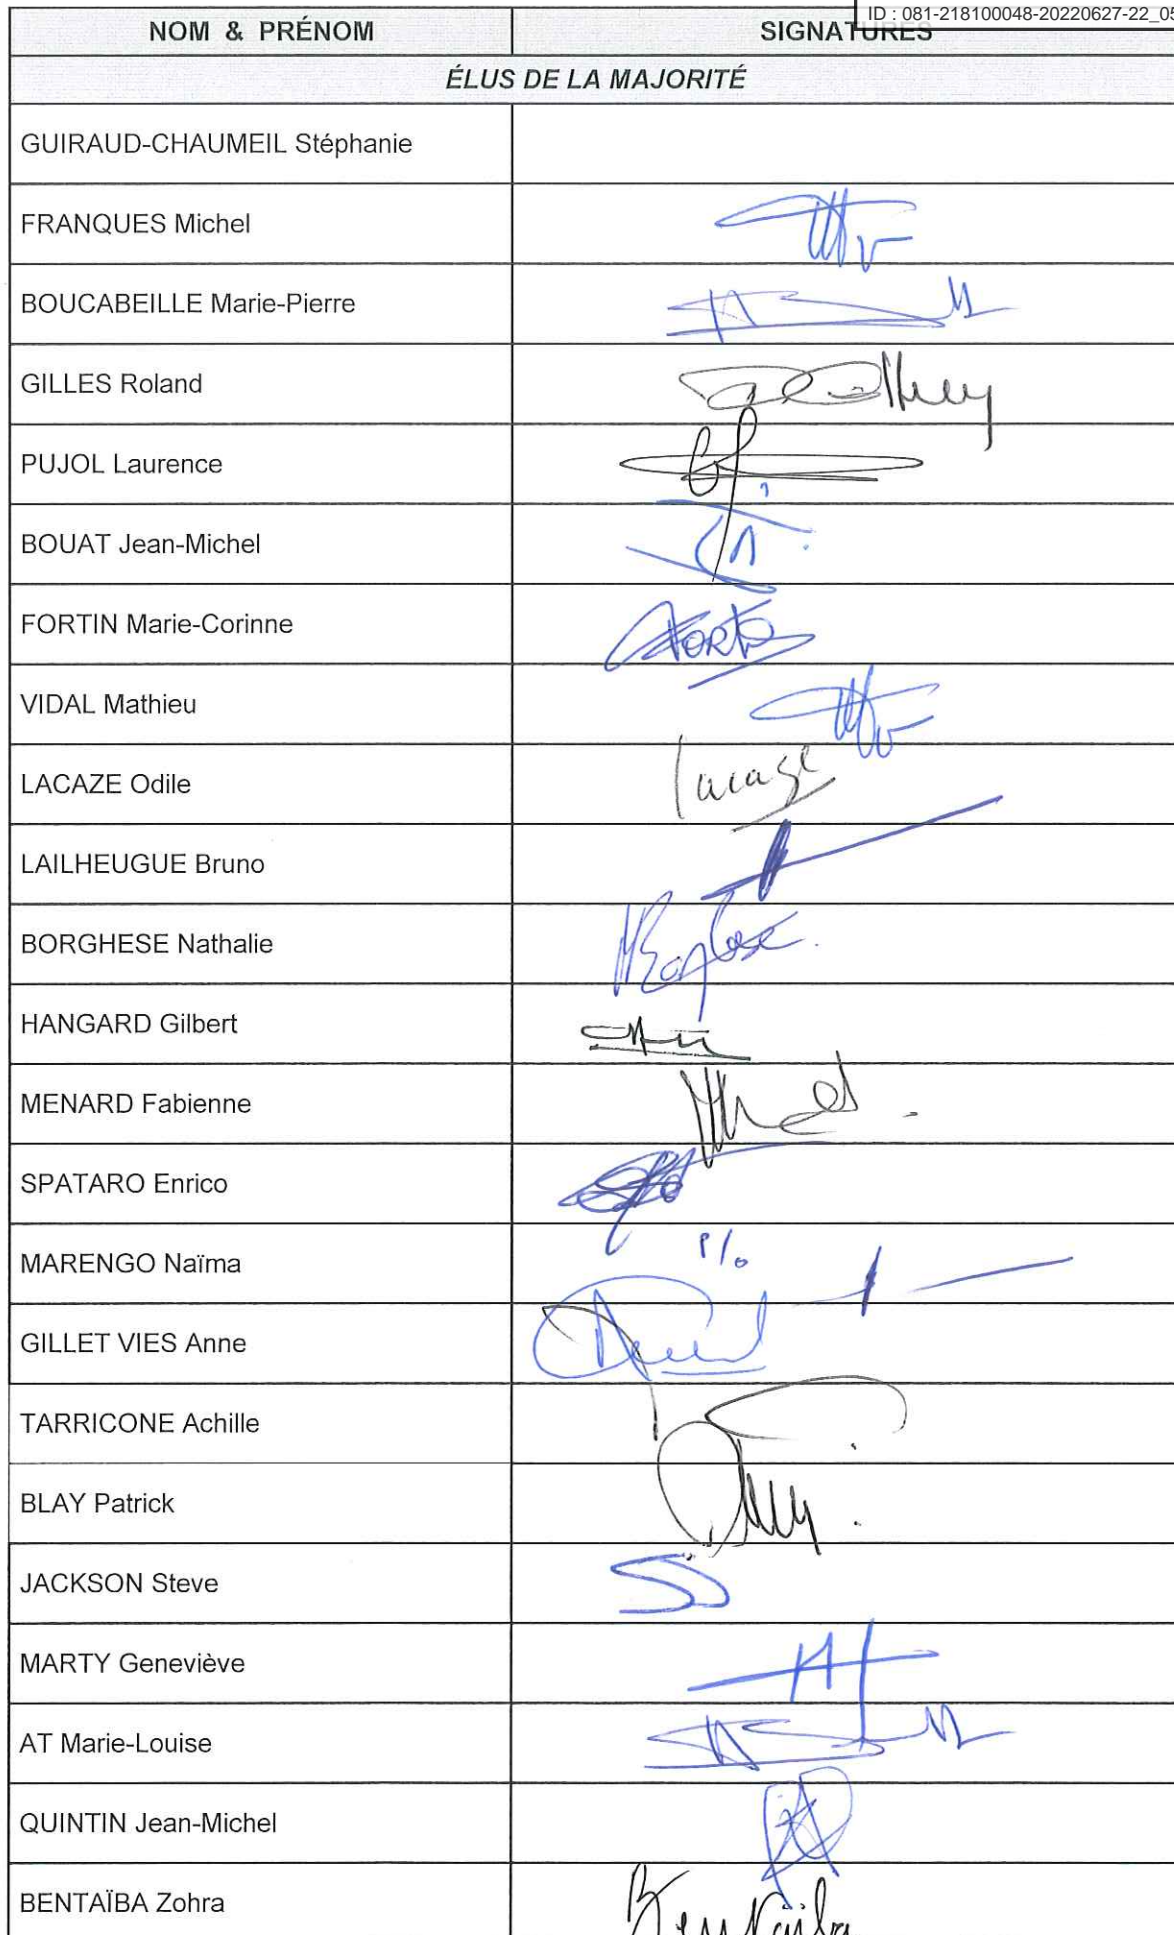 ID : 081-218100048-20220627-22_05
NOM & PRÉNOM SIGNATURES
ÉLUS DE LA MAJORITÉ
GUIRAUD-CHAUMEIL Stéphanie
FRANQUES Michel
BOUCABEILLE Marie-Pierre
GILLES Roland
PUJOL Laurence
BOUAT Jean-Michel
FORTIN Marie-Corinne
VIDAL Mathieu
LACAZE Odile
LAILHEUGUE Bruno
BORGHESE Nathalie
HANGARD Gilbert
MENARD Fabienne
SPATARO Enrico
MARENGO Naïma P/o
GILLET VIES Anne
TARRICONE Achille
BLAY Patrick
JACKSON Steve
MARTY Geneviève
AT Marie-Louise
QUINTIN Jean-Michel
BENTAÏBA Zohra